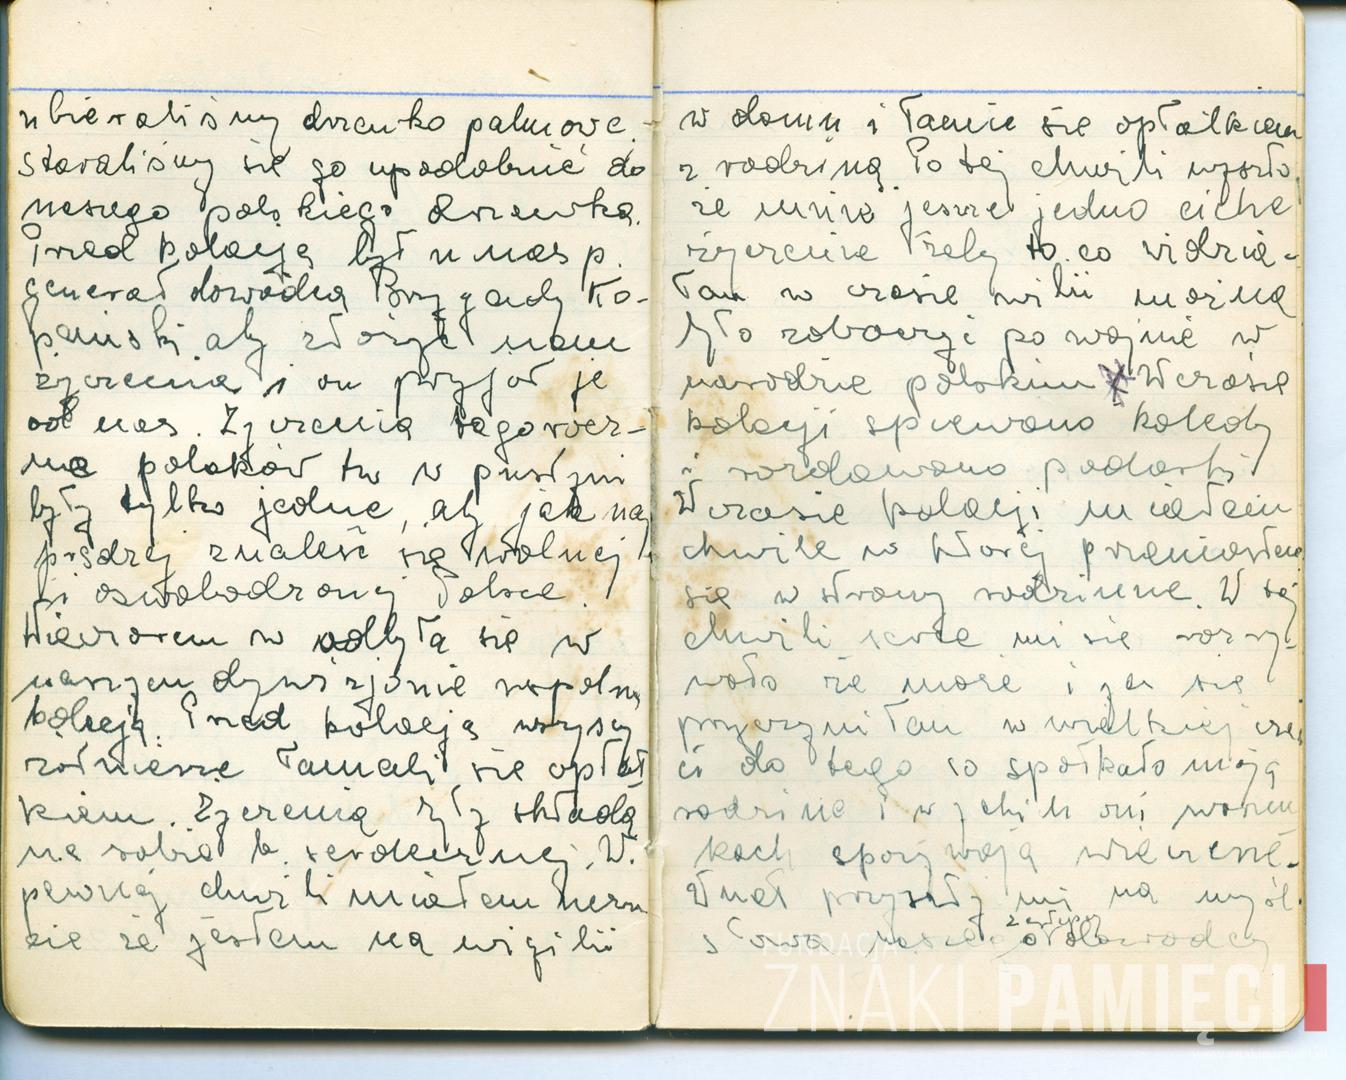 ubieraliśmy drzewko palmowe.
Staraliśmy się go upodobnić do
naszego polskiego drzewka.
Przed kolacją był u nas p.
generał dowódca Brygady Ko-
pański aby złożyć nam
życzenia i on przyjął je
od nas. Życzenia tegorocz-
ne polaków tu w pustyni
były tylko jedne, aby jak naj
prędzej znaleść się wolnej
i oswobodzonej Polsce.
Wieczorem w odbyła się w
naszym dywizjonie wspólna
kolacja. Przed kolacją wszyscy
żołnierze łamali się opłat
kiem. Życzenia były składa
ne sobie b. serdecznej. W.
pewnej chwili miałem
się że jestem na wigilii
w domu i łamie się opłatkiem
z rodziną. Po tej chwili wyszło
ze mnie jeszcze jedno ciche
życzenie żeby to co widzia-
łam w czasie wilii można
było zobaczyć po wojnie w
narodzie polskim W czasie
kolacji śpiewano kolędy
i rozdawano podarki
W czasie kolacji miałem
chwile w której przeniosłem
się w strony rodzinne. W tej
chwili serce mi się rozry-
wało że może i ja się
przyczyniłam w wielkiej częś
ci do tego co spotkało moją
rodzine i w jakich oni warun
kach spożywają wieczerze.
Wnet przyszły mi na myśl
zastępcy
słowa naszego dowódcy
FUNDACJA
ZNAKI PAMIĘCI